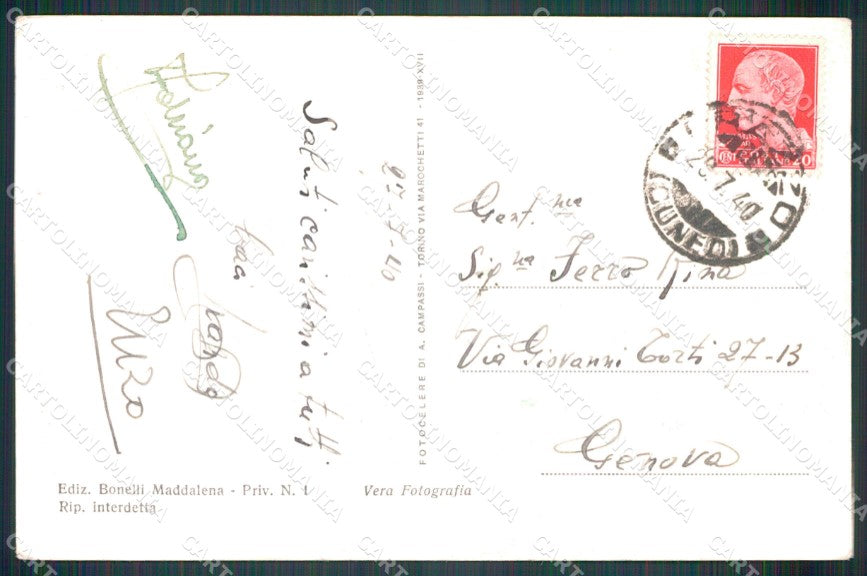 Adriano
Saluti carissimi a tutti
baci
Enzo
FOTOCELERE DI A. CAMPASSI - TORINO VIA MAROCHETTI 41 - 1939-XVII
Gent.ma
Sig.na Ferro Rina
Via Giovanni Torti 27-13
Genova
CENT. 20
29.7.40
(CUNEO)
Ediz. Bonelli Maddalena - Priv. N. 1
Rip. interdetta
Vera Fotografia
CARTOLINOMANIA